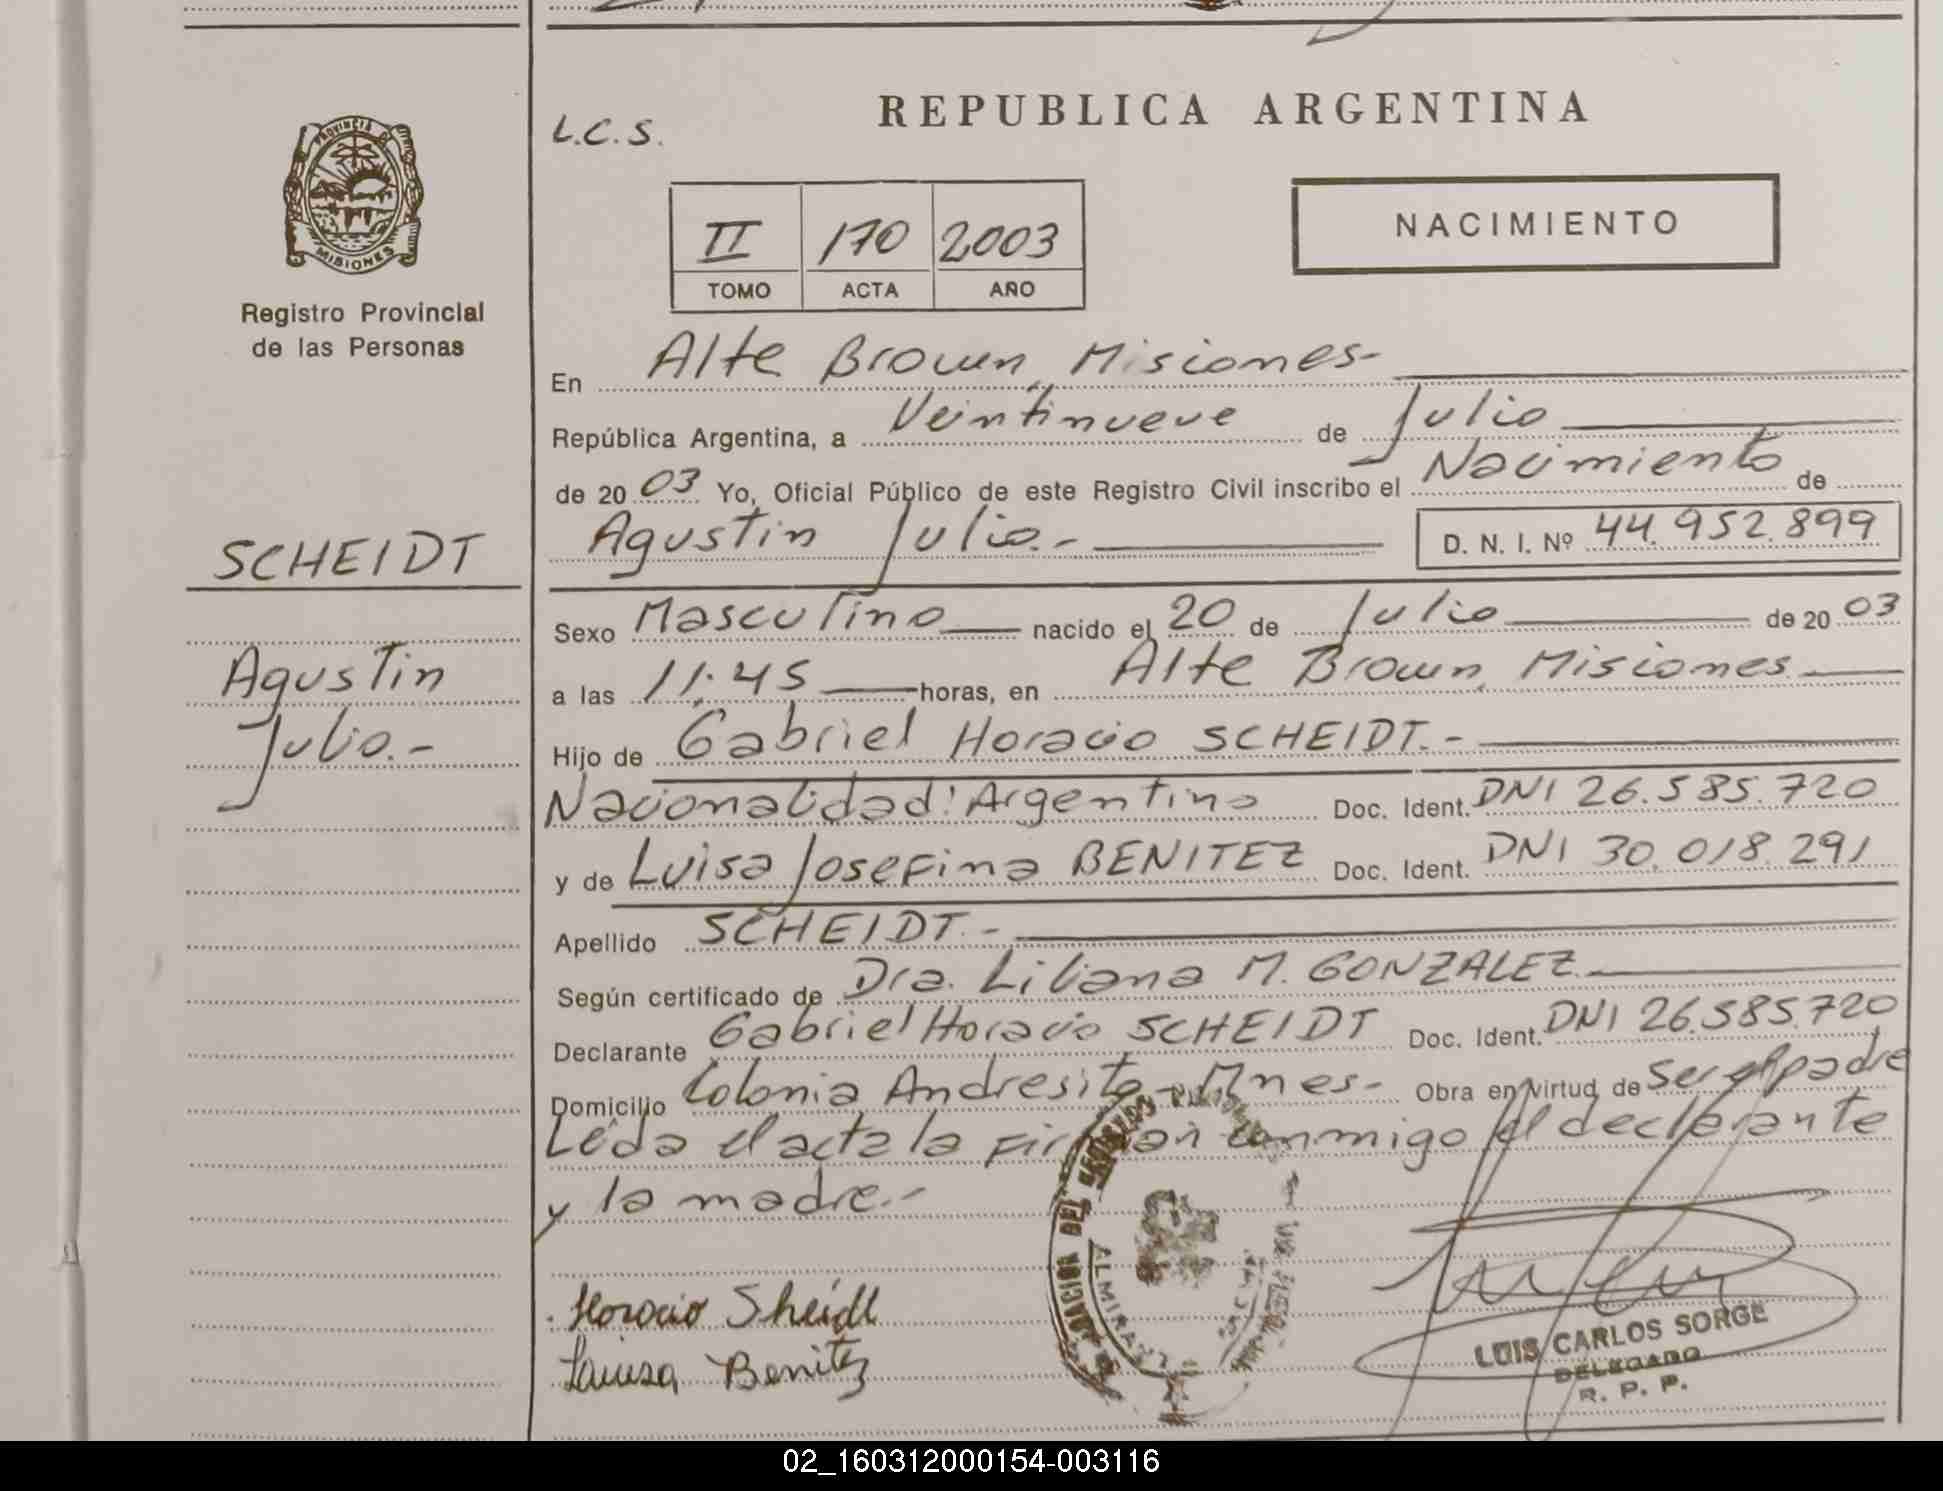 PROVINCIA DE
MISIONES
Registro Provincial
de las Personas
SCHEIDT
Agustin
Julio.-
L.C.S.
REPUBLICA ARGENTINA
II 170 2003
TOMO ACTA AÑO
NACIMIENTO
En Alte Brown, Misiones-
República Argentina, a Veintinueve de Julio
de 2003 Yo, Oficial Público de este Registro Civil inscribo el Nacimiento de
Agustin Julio.- D. N. I. Nº 44.952.899
Sexo Masculino nacido el 20 de Julio de 2003
a las 11:45 horas, en Alte Brown, Misiones
Hijo de Gabriel Horacio SCHEIDT.-
Nacionalidad: Argentina Doc. Ident. DNI 26.585.720
y de Luisa Josefina BENITEZ Doc. Ident. DNI 30.018.291
Apellido SCHEIDT.-
Según certificado de Dra. Liliana M. GONZALEZ
Declarante Gabriel Horacio SCHEIDT Doc. Ident. DNI 26.585.720
Domicilio Colonia Andresito - Mnes- Obra en virtud de ser el padre
Leída el acta la firman conmigo el declarante
y la madre.-
Horacio Sheidt
Luisa Benitez
LUIS CARLOS SORGE
DELEGADO
R. P. P.
02_160312000154-003116